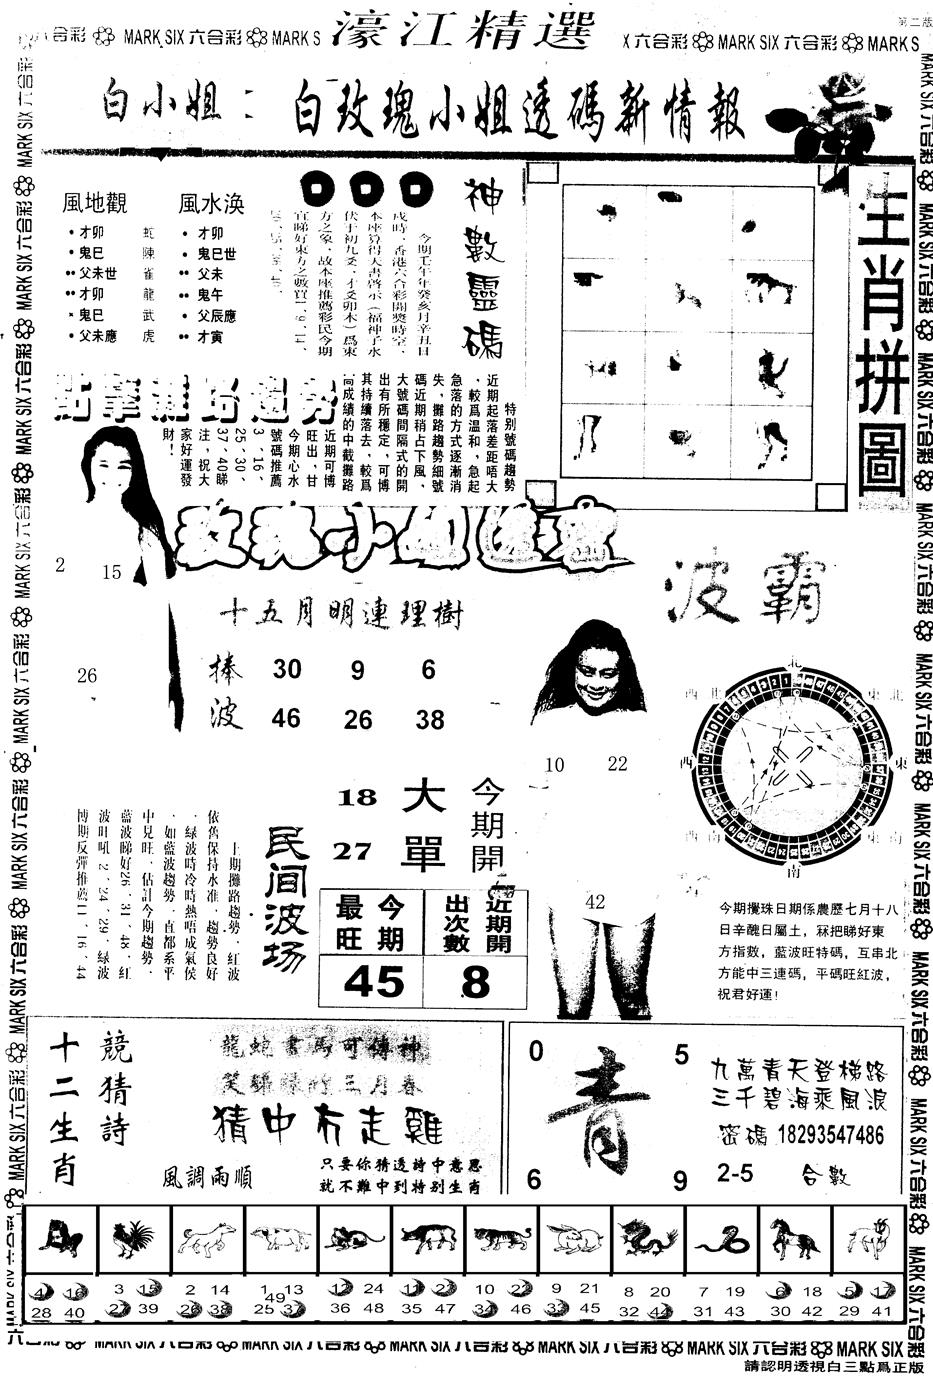 第二版
濠江精選
六合彩 MARK SIX 六合彩 MARK S
X 六合彩 MARK SIX 六合彩 MARK S
白小姐：白玫瑰小姐透碼新情報
風地觀
才卯 蛇
鬼巳 陳
父未世 雀
才卯 龍
鬼巳 武
父未應 虎
風水渙
才卯
鬼巳世
父未
鬼午
父辰應
才寅
神數靈碼
今期壬午年癸亥月辛丑日
戌時，香港六合彩開獎時空，
本座算得天書啓示（福神子水
伏于初九爻，才爻卯木）爲東
方之象，故本座推薦彩民今期
生肖拼圖
點擊攤路趨勢
特别號碼趨勢
近期起落差距唔大
，較爲溫和，急起
急落的方式逐漸消
失，攤路趨勢細號
碼近期稍占下風，
大號碼間隔式的開
出有所穩定，可博
其持續落去，較爲
高成績的中截攤路
近期可博
旺出，甘
今期心水
號碼推薦
3、16、
25、30、
37、40睇
注，祝大
家好運發
財！
玫瑰小姐透密
2
15
26
十五月明連理樹
捧 30 9 6
波 46 26 38
波霸
10
22
42
北
東北
東
南
西南
西
西北
今期開
大單
18
27
今期最旺
45
近期開出次數
8
民间波场
上期攤路趨勢，紅波
依舊保持水准，趨勢良好
，绿波時冷時熱唱成氣侯
，如藍波趨勢，直都系平
中見旺，估計今期趨勢，
藍波睇好26、31、48，紅
波旺吼2、24、29，绿波
博期反彈推薦11、16、44
今期攪珠日期係農歷七月十八
日辛醜日屬土，冧把睇好東
方指數，藍波旺特碼，互串北
方能中三連碼，平碼旺紅波，
祝君好運！
十二生肖
競猜詩
龍蛇書馬可傳神
猜中冇走雞
風調雨順
只要你猜透詩中意思
就不難中到特别生肖
0 5
青
6 9
九萬青天登梯路
三千碧海乘風浪
密碼 18293547486
2-5 合數
4 16 28 40
3 15 27 39
2 14 26 38
1 13 49 25 37
12 24 36 48
11 23 35 47
10 22 34 46
9 21 33 45
8 20 32 44
7 19 31 43
6 18 30 42
5 17 29 41
六合彩 MARK SIX 六合彩 MARK SIX 六合彩 MARK SIX 六合彩 MARK SIX 六合彩 MARK SIX 六合彩 MARK SIX
請認明透視白三點爲正版